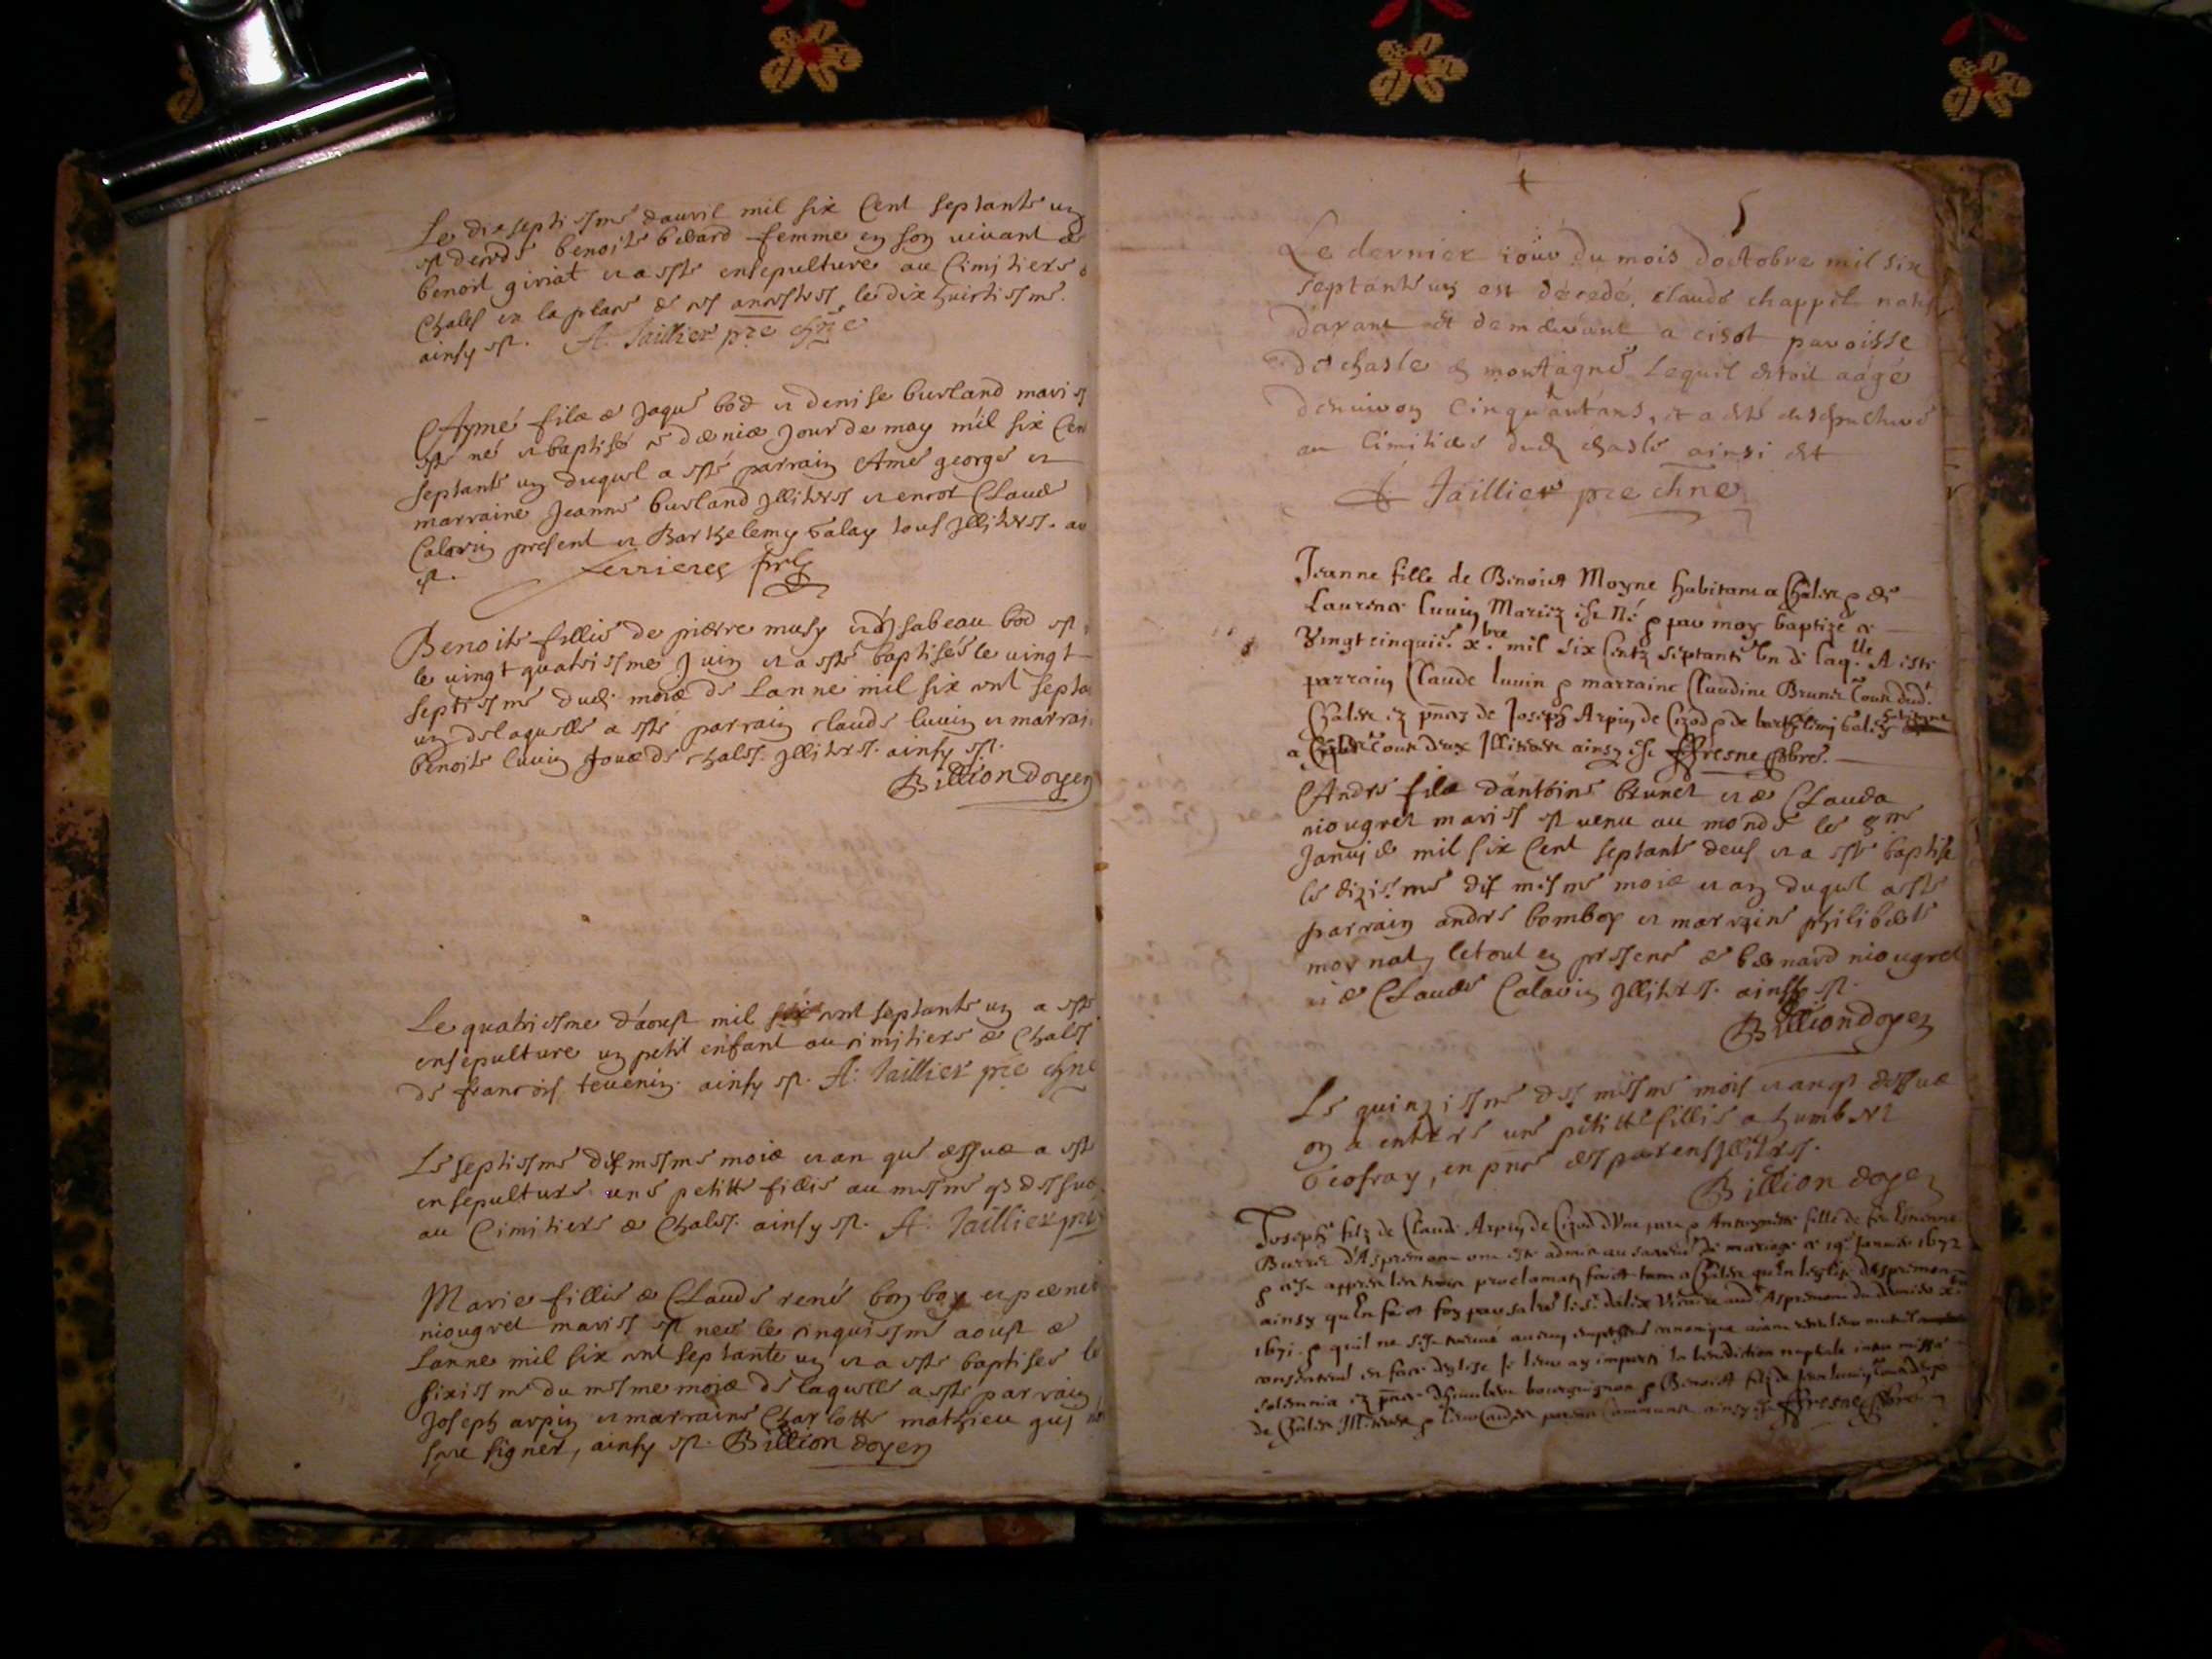 Le dixseptiesme dauvril mil six Cent septante un
est decedé benoiste bedard femme en son vivant de
benoit giriat et a esté ensepulture au Cimitiere
Chales en la place de ses ancestres le dix huictiesme.
ainsy est. A: Jaillier pre chne
Aymé filz de Jaque bod et denise burland maries
este né et baptisé le dernier Jour de may mil six Cen
septante un duquel a esté parrain Amé george et
marraine Jeanne burland Illiteres et encor Claude
Calavin present et Barthelemy balay tous Illiteres. ain
est. Ferrieres
Benoiste fillie de pierre musy et ysabeau bod est
le vingt quatriesme Juin et a esté baptisée le vingt
septiesme dud. mois de Lanne mil six cent septa
un de laquelle a esté parrain claude luvin et marrai
benoite luvin tous de chales. Illiteres. ainsy est.
Billion doyen
Le quatriesme d'aoust mil six cent septante un a esté
ensepulture un petit enfant au cimitiere de Chales
de francois tevenin. ainsy est. A: Jaillier pre chne
Le septiesme dix mesme mois et an que dessus a esté
ensepulture une petitte fillie au mesme desus
au Cimitiere de Chales. ainsy est. A: Jaillier pre
Marie fillie de Claude rené bonboy et pernet
niougret maries est née le cinquiesme aoust de
Lanne mil six cent septante un et a esté baptisée le
sixiesme du mesme mois de laquelle a esté parrain
Joseph arpin et marraine Charlotte mathieu qui
signer, ainsy est. Billion doyen
5
Le dernier iour du mois doctobre mil six
septante un est décedé, claude chappel
demeurant a cisot paroisse
de chasle en montagne Lequel estoit aágé
denviron Cinquantans, et a esté
au Cimitiere dud chasle ainsi est
A Jaillier pre chne
Jeanne fille de Benoict Moyne habitant a Chales & de
Laurence luvin Mariez est Né & par moy baptizé ce
Vingt cinquie. xbre mil six Centz septante Un de laqlle A este
parrain Claude luvin & marraine Claudine Brunet tous dud.
Chales ez pnce de Joseph Arpin de Cizod & de barthelemi balay habitant
a Chales tous deux Illiteres ainsy est Fresne
André filz dántoine brunet et de Clauda
niougret maries est venu au monde le 8me
Janvie mil six Cent septante deus et a esté baptisé
le diziesme dix mesme mois et an duquel a esté
parrain andre bomboy et marraine philiberte
mornat, le tout en presence de bernard niougret
et de Claude Calavin Illiteres. ainsy est.
Billion doyen
Le quinziesme des mesme mois et an q dessus
on a enterré une petitte fillie a humbert
Geofray, en pnce des parens Illitres.
Billion doyen
Joseph filz de Claude Arpin de Cizod dUne part & Anthoynette fille de feu Estienne
Burret d'Aspremont ont esté admis au sacrent de mariage ce 19e Janvier 1672
& ce appres les trois proclamatz faict tant a Chales quEn leglise dAspremont
ainsy quEn faict foy par sa le Sr. dalix Vicaire aud Aspremont du dernier xbre
1671. & quil ne sest treuvé aucun empeschent canonique
consentement en face deglise Je leur ay imparty la benediction nuptale intra missa
solemnia ez pnce dhumbert bourguignon & Benoict filz de Jean luvin
de Chales Illiteres & ainsy est Fresne